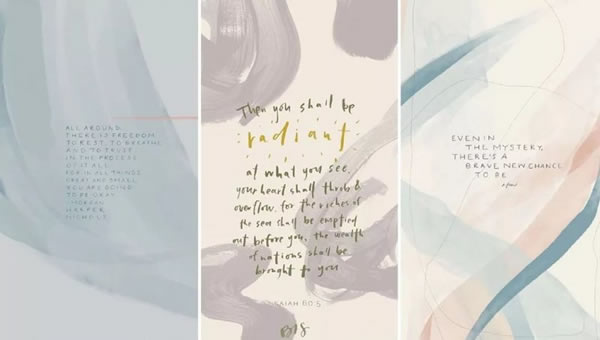 ALL AROUND,
THERE IS FREEDOM
TO REST, TO BREATHE
AND TO TRUST
IN THE PROCESS
OF IT ALL
FOR IN ALL THINGS
GREAT AND SMALL
YOU ARE GOING
TO BE OKAY
-MORGAN
HARPER
NICHOLS
Then you shall be
radiant
at what you see,
your heart shall throb &
overflow, for the riches of
the sea shall be emptied
out before you, the wealth
of nations shall be
brought to you
ISAIAH 60:5
EVEN IN
THE MYSTERY,
THERE'S A
BRAVE NEW CHANCE
TO BE